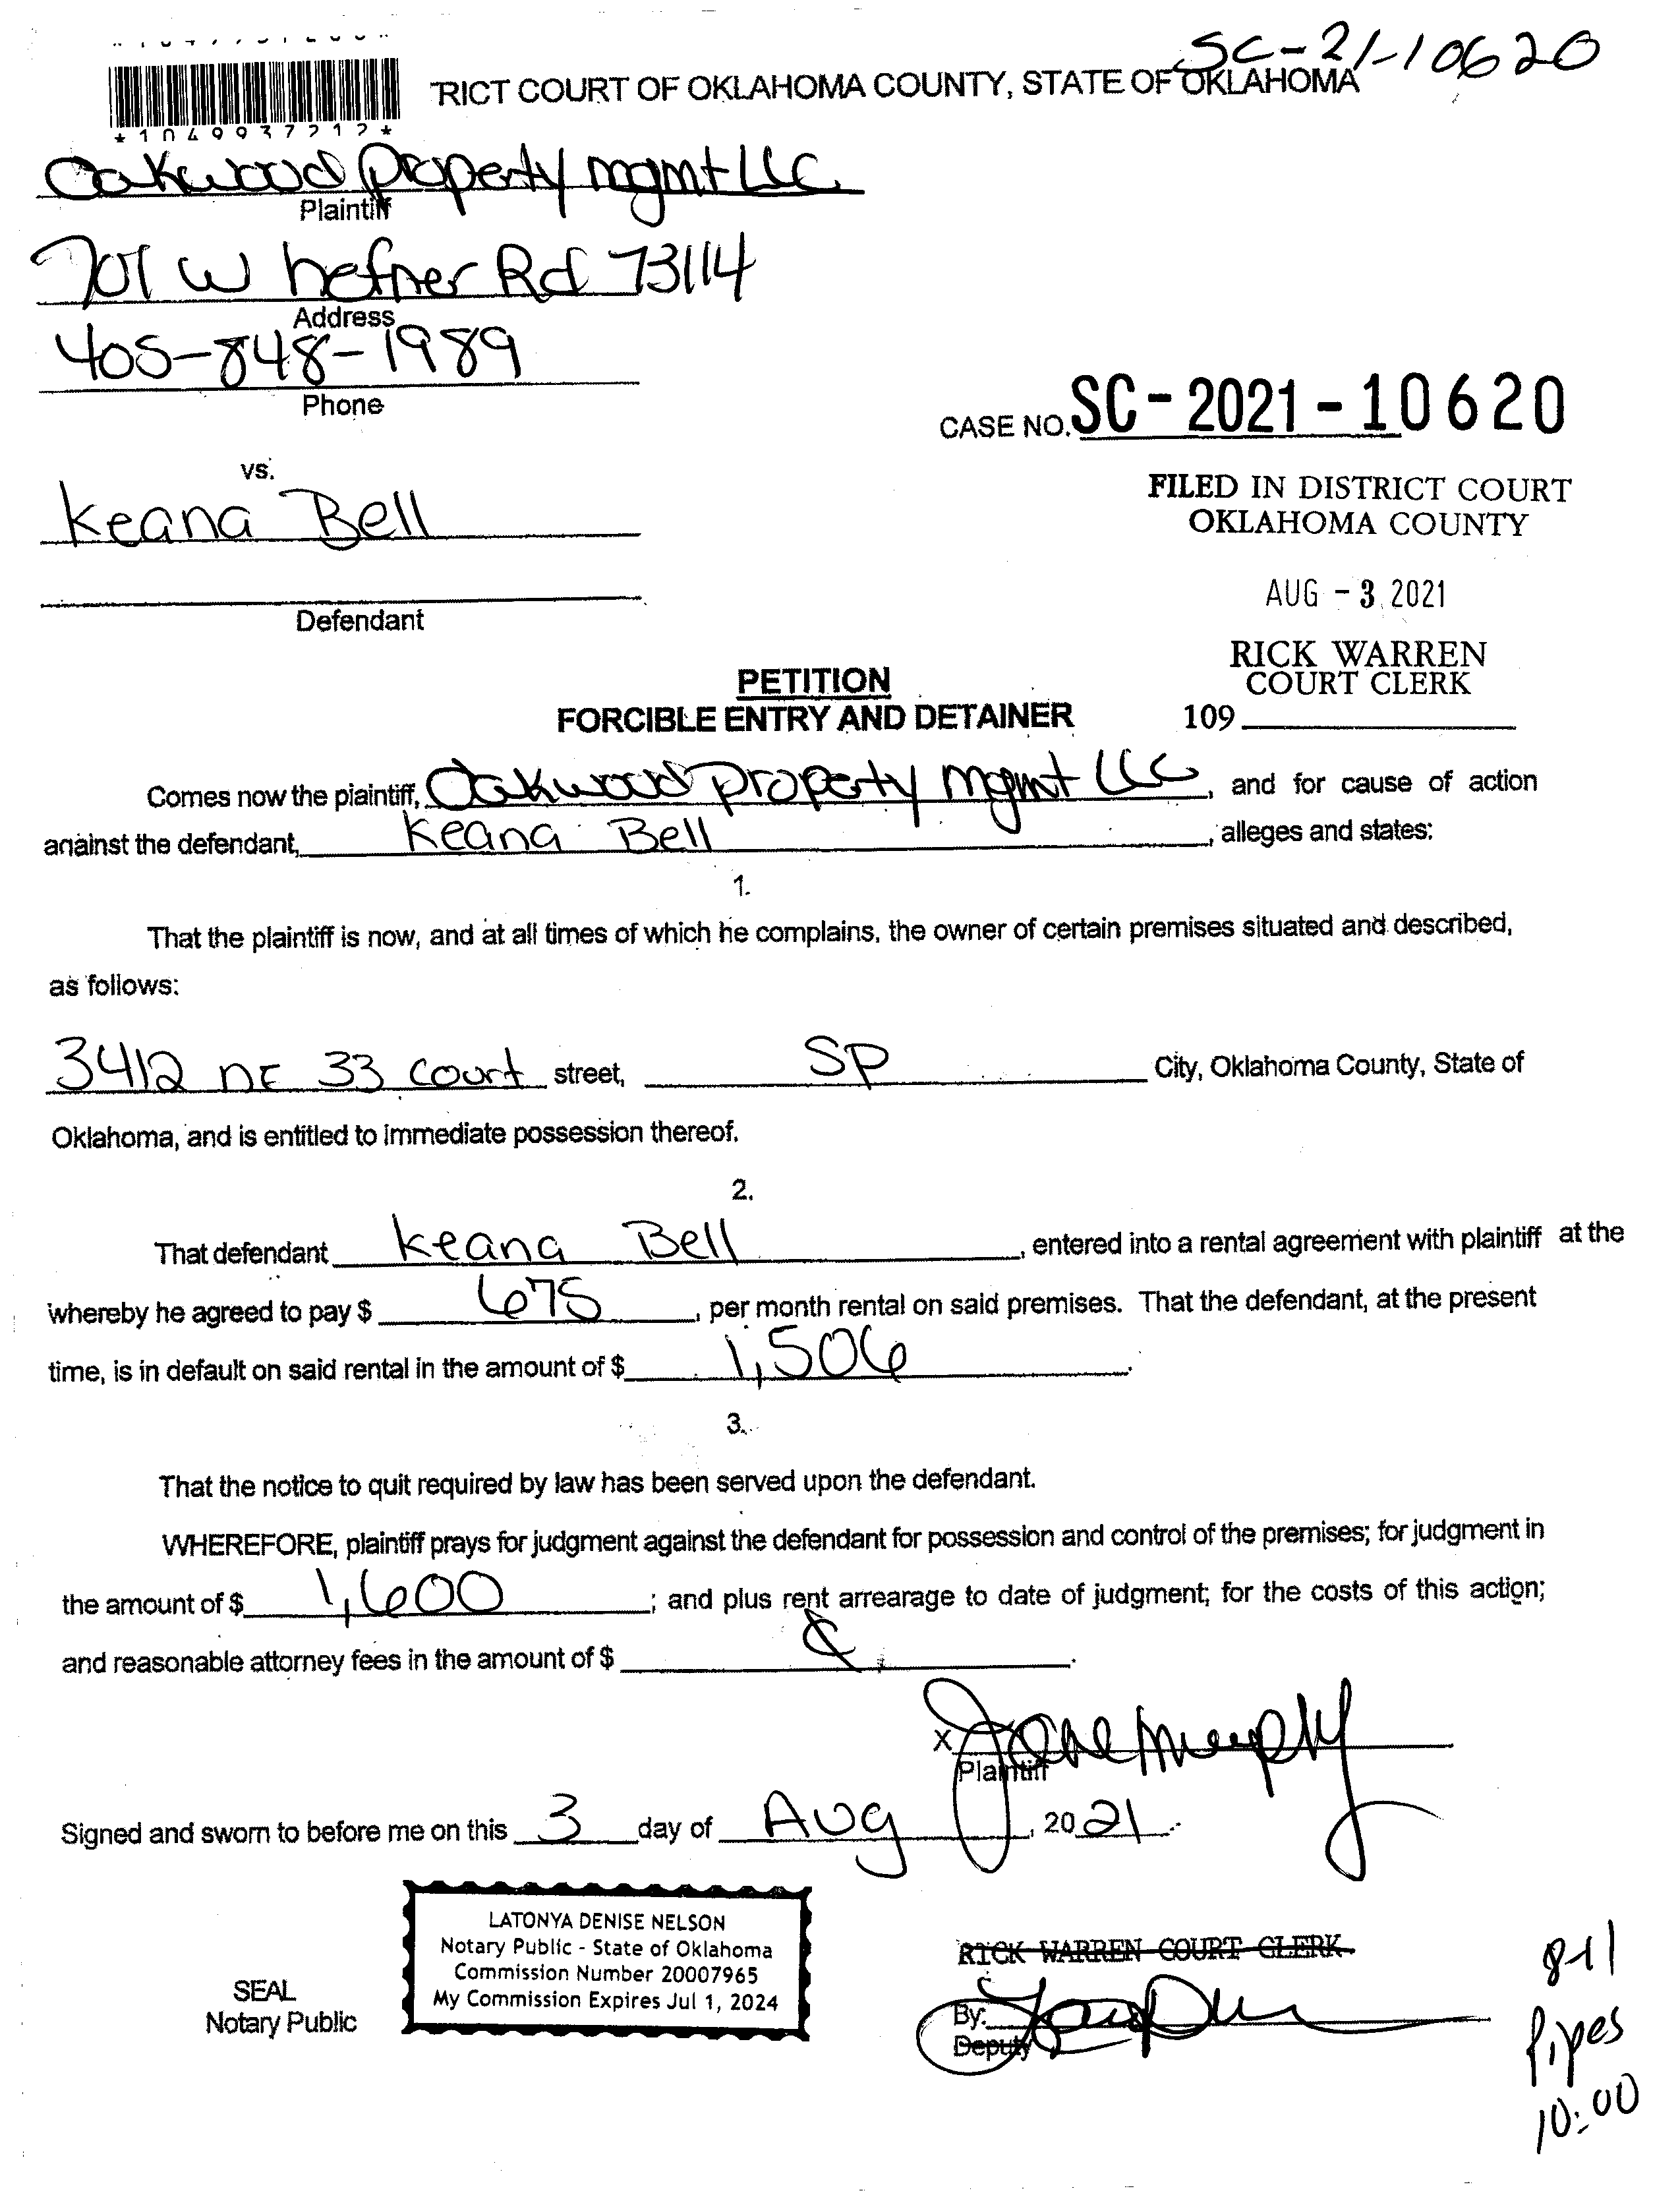 SC-21-10620
TRICT COURT OF OKLAHOMA COUNTY, STATE OF OKLAHOMA
*1049937212*
Oakwood Property mgmt LLC
Plaintiff
701 W hefner Rd 73114
Address
405-848-1989
Phone
CASE NO. SC-2021-10620
vs.
FILED IN DISTRICT COURT
OKLAHOMA COUNTY
Keana Bell
AUG - 3 2021
Defendant
RICK WARREN
COURT CLERK
109
PETITION
FORCIBLE ENTRY AND DETAINER
Comes now the plaintiff, Oakwood property mgmt LLC, and for cause of action
against the defendant, Keana Bell, alleges and states:
1.
That the plaintiff is now, and at all times of which he complains, the owner of certain premises situated and described,
as follows:
3412 NE 33 Court street, SP City, Oklahoma County, State of
Oklahoma, and is entitled to immediate possession thereof.
2.
That defendant Keana Bell, entered into a rental agreement with plaintiff at the
whereby he agreed to pay $ 675, per month rental on said premises. That the defendant, at the present
time, is in default on said rental in the amount of $ 1,506.
3.
That the notice to quit required by law has been served upon the defendant.
WHEREFORE, plaintiff prays for judgment against the defendant for possession and control of the premises; for judgment in
the amount of $ 1,600; and plus rent arrearage to date of judgment; for the costs of this action;
and reasonable attorney fees in the amount of $
X Jane Murphy
Plaintiff
Signed and sworn to before me on this 3 day of Aug, 2021.
LATONYA DENISE NELSON
Notary Public - State of Oklahoma
Commission Number 20007965
My Commission Expires Jul 1, 2024
SEAL
Notary Public
RICK WARREN COURT CLERK
By:
Deputy
8-11
Pipes
10:00